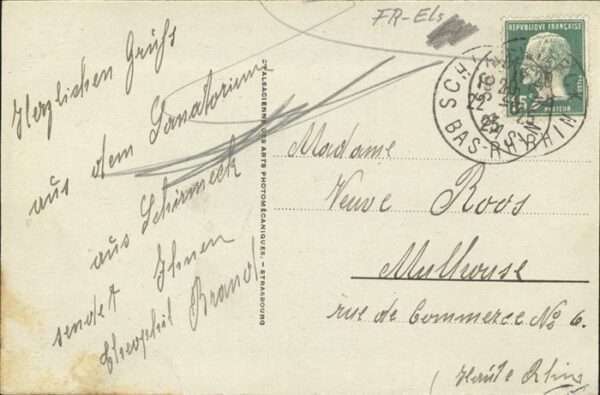 FR-Els
REPVBLIQVE FRANÇAISE
15c
PASTEUR
SCHIRMECK
22
BAS-RHIN
Herzlichen Gruß
aus dem Sanatorium
aus Schirmeck
sendet Ihnen
Theophil Brand
ALSACIENNE DES ARTS PHOTOMÉCANIQUES, — STRASBOURG
Madame
Veuve Roos
Mulhouse
rue de Commerce No 6.
(Haute Rhin)